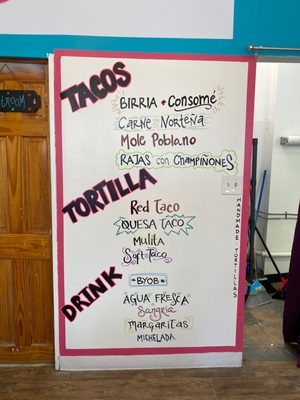 TROOM
TACOS
BIRRIA + Consomé
Carne Norteña
Mole Poblano
RAJAS con CHAMPIÑONES
TORTILLA
Red Taco
QUESA TACO
Mulita
Soft Taco
HANDMADE TORTILLAS
DRINK
BYOB
AGUA FRESCA
Sangria
MARGARITAS
MICHELADA